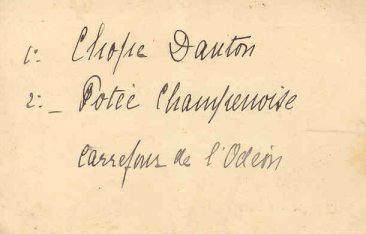 1º Chope Danton
2º - Potée Champenoise
Carrefour de l'Odéon